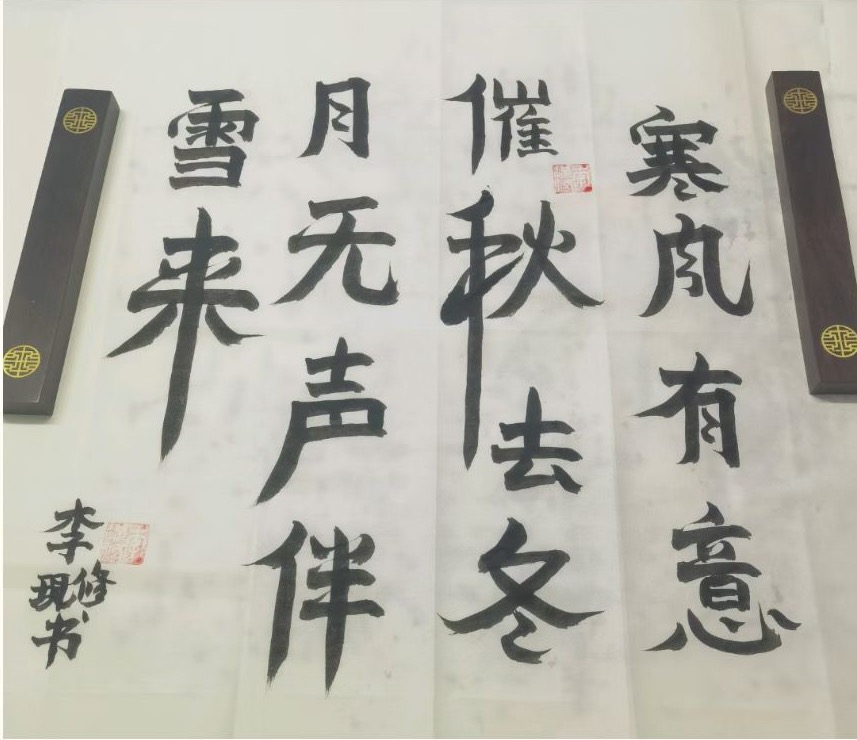 寒风有意
催秋去冬
月无声伴
雪来
李修现书